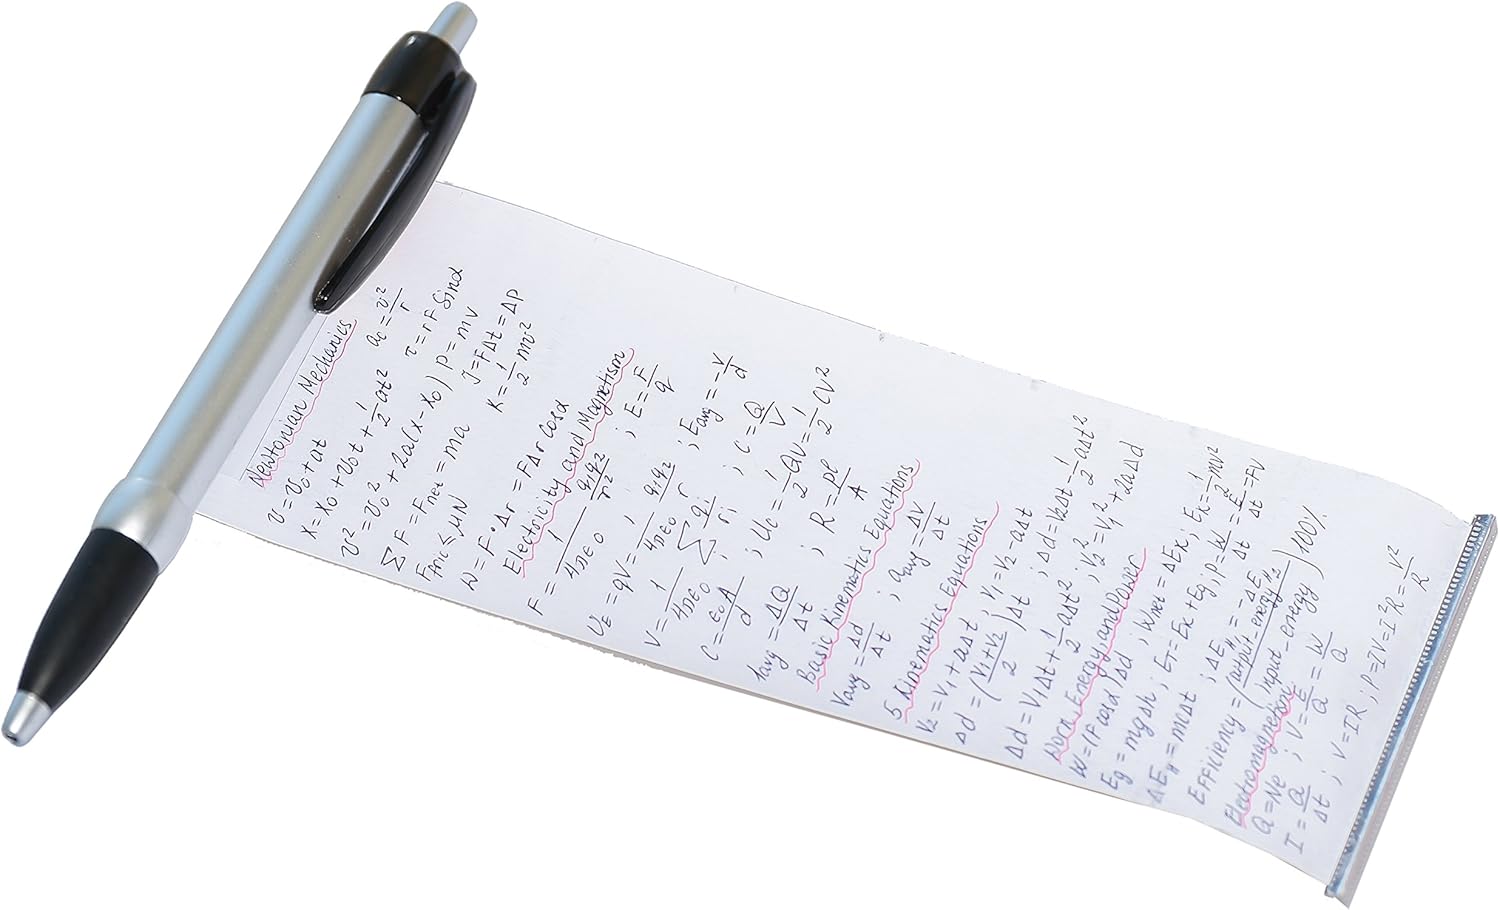 Newtonian Mechanics
v = v₀ + at    a_c = v²/r
x = x₀ + v₀t + 1/2 at²    τ = rF Sinα
v² = v₀² + 2a(x - x₀)    p = mv
Σ F = F_net = ma    J = FΔt = ΔP
F_fric ≤ μN    K = 1/2 mv²
W = F · Δr = FΔr cosα
Electricity and Magnetism
F = 1/4πε₀ q₁q₂/r² ; E = F/q
U_E = qV = 1/4πε₀ q₁q₂/r ; E_avg = -V/d
V = 1/4πε₀ Σ qᵢ/rᵢ ; C = Q/V
C = ε₀A/d ; U_c = 1/2 QV = 1/2 CV²
I_avg = ΔQ/Δt ; R = ρl/A
Basic Kinematics Equations
V_avg = Δd/Δt ; a_avg = ΔV/Δt
5 Kinematics Equations
V₂ = V₁ + aΔt ; V₁ = V₂ - aΔt
Δd = (V₁+V₂/2)Δt ; Δd = V₂Δt - 1/2 aΔt²
Δd = V₁Δt + 1/2 aΔt² ; V₂² = V₁² + 2aΔd
Work, Energy, and Power
W = (F cosα)Δd ; W_net = ΔE_k ; E_k = 1/2 mv²
E_g = mgΔh ; E_T = E_k + E_g ; P = W/Δt = E/Δt = FV
ΔE_H = mcΔt ; ΔE_H = -ΔE
Efficiency = (output - energy/input - energy) 100%
Electromagnetism
Q = Ne ; V = E/Q = W/Q
I = Q/Δt ; V = IR ; P = IV = I²R = V²/R